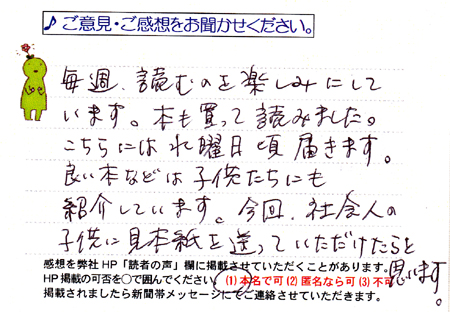 ♪ご意見・ご感想をお聞かせください。
毎週、読むのを楽しみにして
います。本も買って読みました。
こちらには水曜日頃届きます。
良い本などは子供たちにも
紹介しています。今回、社会人の
子供に見本紙を送っていただけたらと
思います。
感想を弊社HP「読者の声」欄に掲載させていただくことがあります。
HP掲載の可否を○で囲んでください。(1)本名で可(2)匿名なら可(3)不可
掲載されましたら新聞帯メッセージにてご連絡させていただきます。